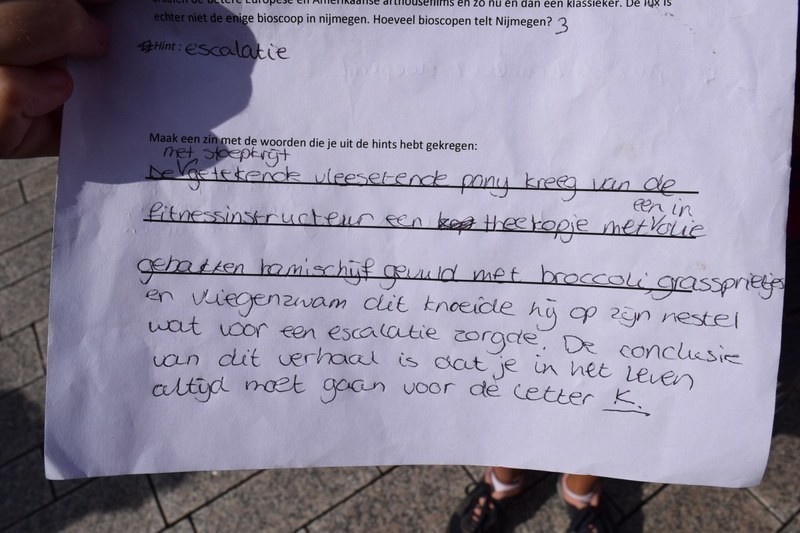 betere Europese en Amerikaanse arthousefilms en zo nu en dan een klassieker. De lux is
echter niet de enige bioscoop in nijmegen. Hoeveel bioscopen telt Nijmegen? 3
Hint: escalatie
Maak een zin met de woorden die je uit de hints hebt gekregen:
met stoepkrijt
De getekende vleesetende pony kreeg van de
een in
fitnessinstructeur een theekopje met olie
gebakken hamischijf gevuld met broccoli, grassprietjes
en vliegenzwam dit knoeide hij op zijn nestel
wat voor een escalatie zorgde. De conclusie
van dit verhaal is dat je in het leven
altijd moet gaan voor de letter K.